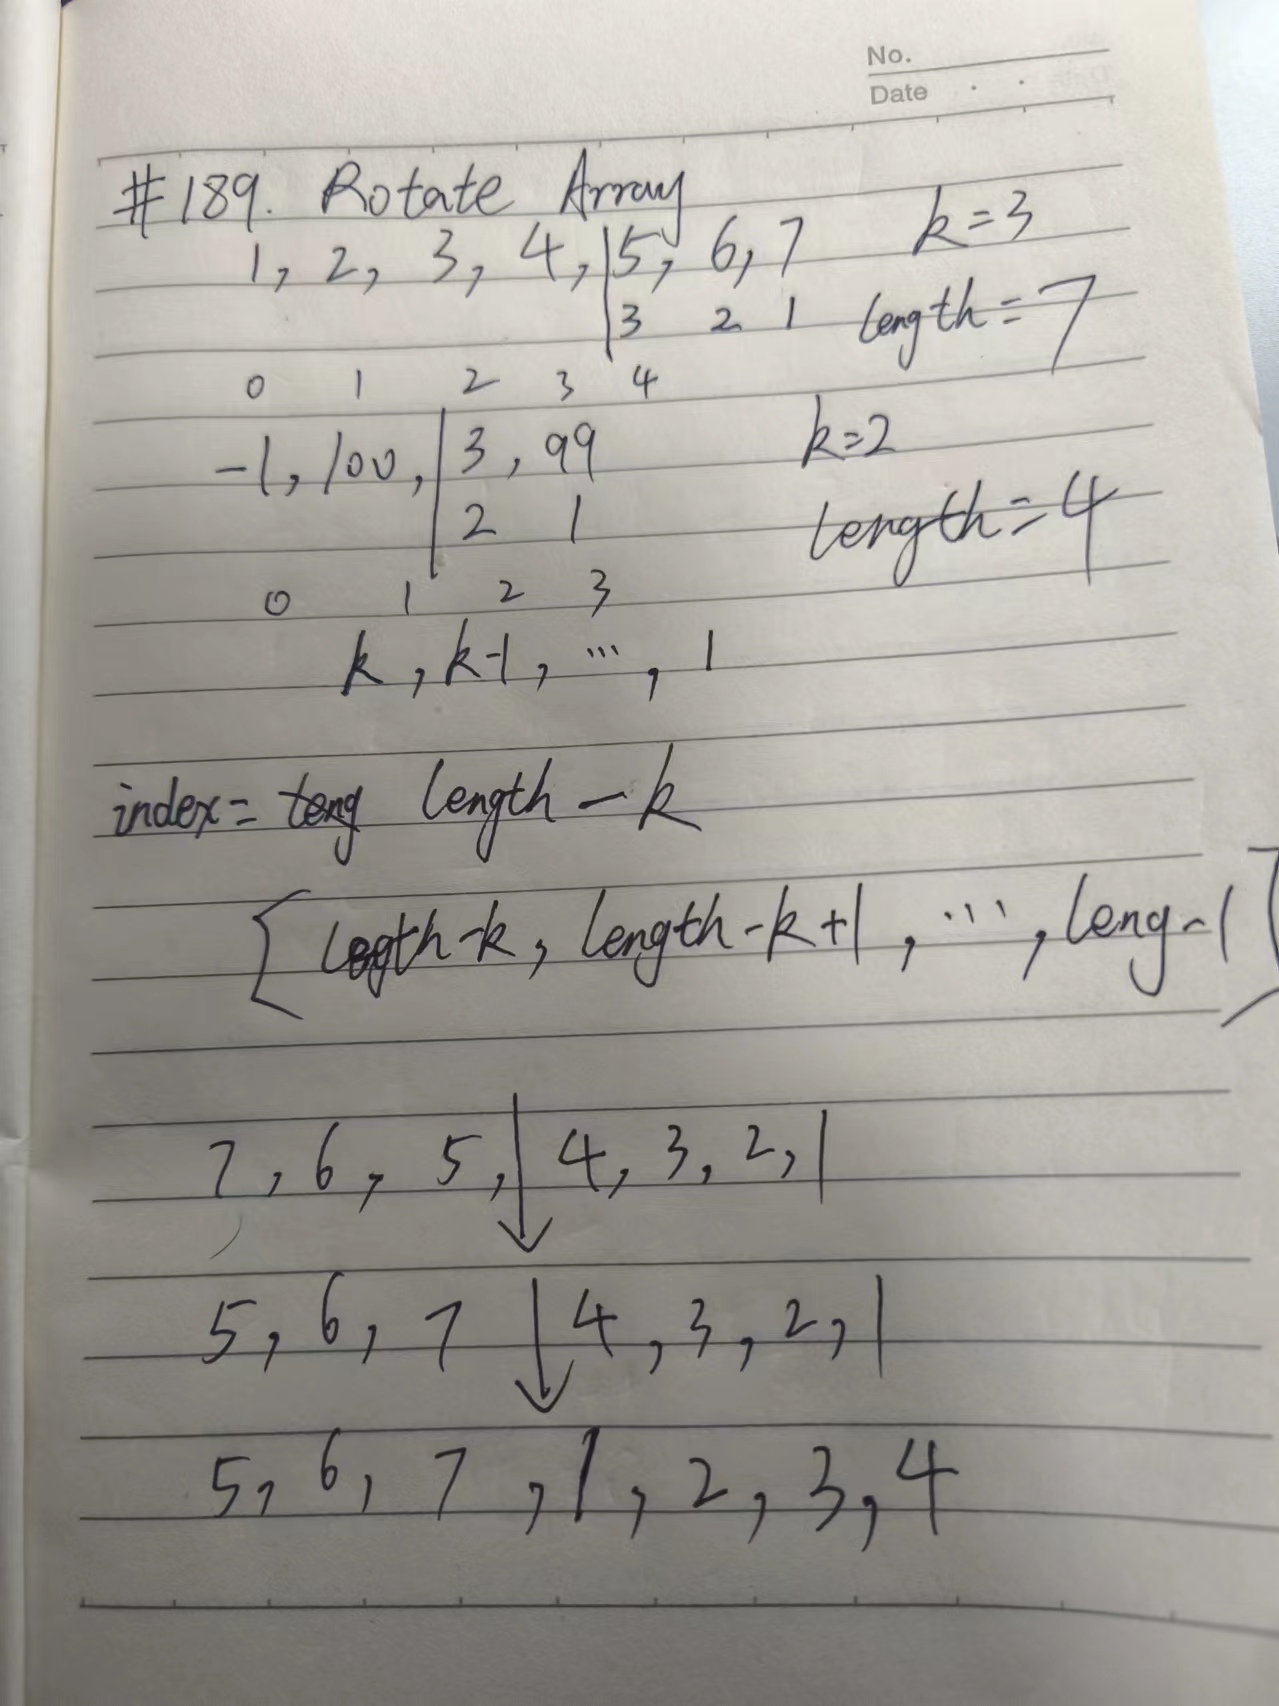 No.
Date
#189. Rotate Array
1, 2, 3, 4, | 5, 6, 7 k=3
3 2 1 length=7
0 1 2 3 4
-1, 100, | 3, 99 k=2
2 1 length=4
0 1 2 3
k, k-1, ..., 1
index= teng length-k
[length-k, length-k+1, ..., leng-1]
7, 6, 5, 4, 3, 2, 1
5, 6, 7 4, 3, 2, 1
5, 6, 7, 1, 2, 3, 4